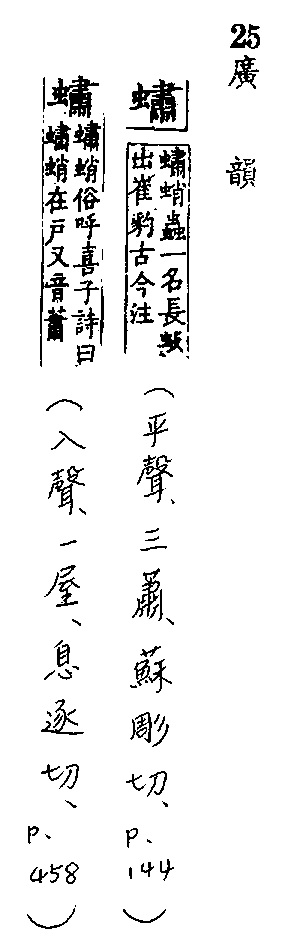 25
廣韻
蠨
蠨蛸蟲一名長蚑
出崔豹古今注
(平聲、三蕭、蘇彫切、p.144)
蠨
蠨蛸俗呼喜子詩曰
蠨蛸在戶又音蕭
(入聲、一屋、息逐切、p.458)